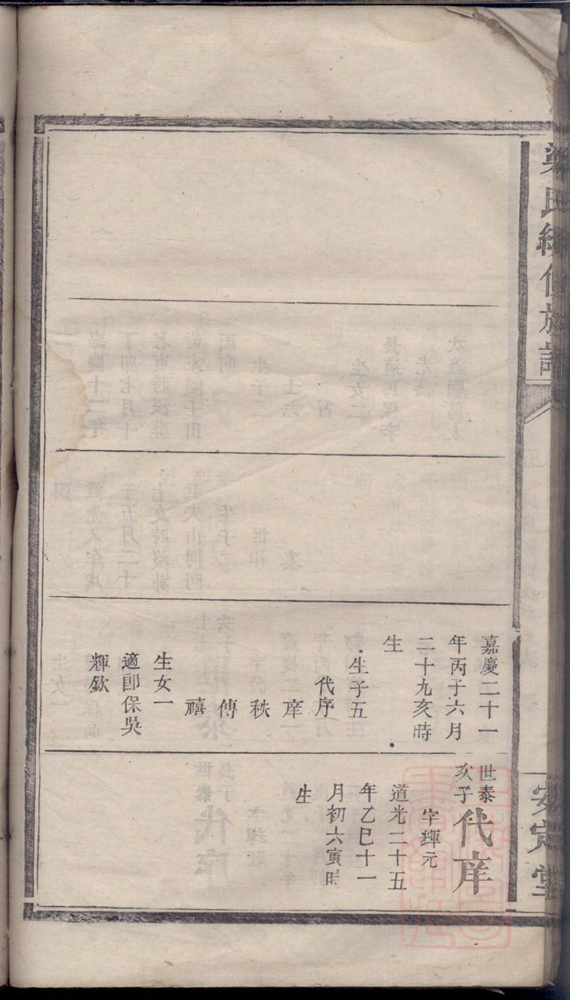 氏續修族譜
安定堂
嘉慶二十一
年丙子六月
二十九亥時
生
生子五
代序
庠
秩
傳
禧
生女一
適郎保吳
輝欽
世泰
次子
代庠
字輝元
道光二十五
年乙巳十一
月初六寅時
生